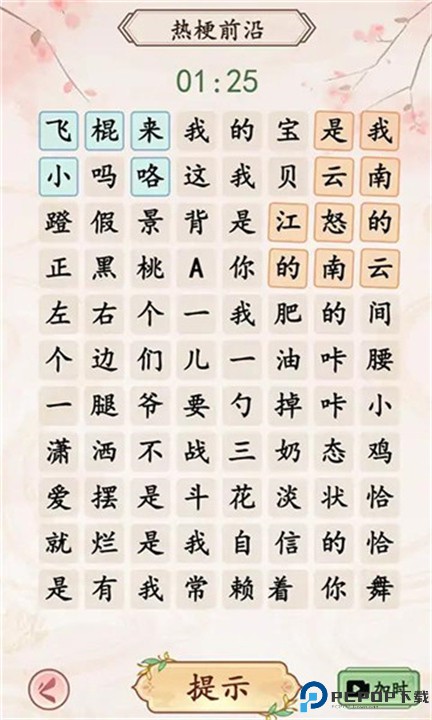 热梗前沿
01:25
飞棍来我的宝是我
小吗咯这我贝云南
蹬假景背是江怒的
正黑桃A你的南云
左右个一我肥的间
个边们儿一油咔腰
一腿爷要勺掉咔小
潇洒不战三奶态鸡
爱摆是斗花淡状恰
就烂是我自信的恰
是有我常赖着你舞
提示
加时
PCPOP下载